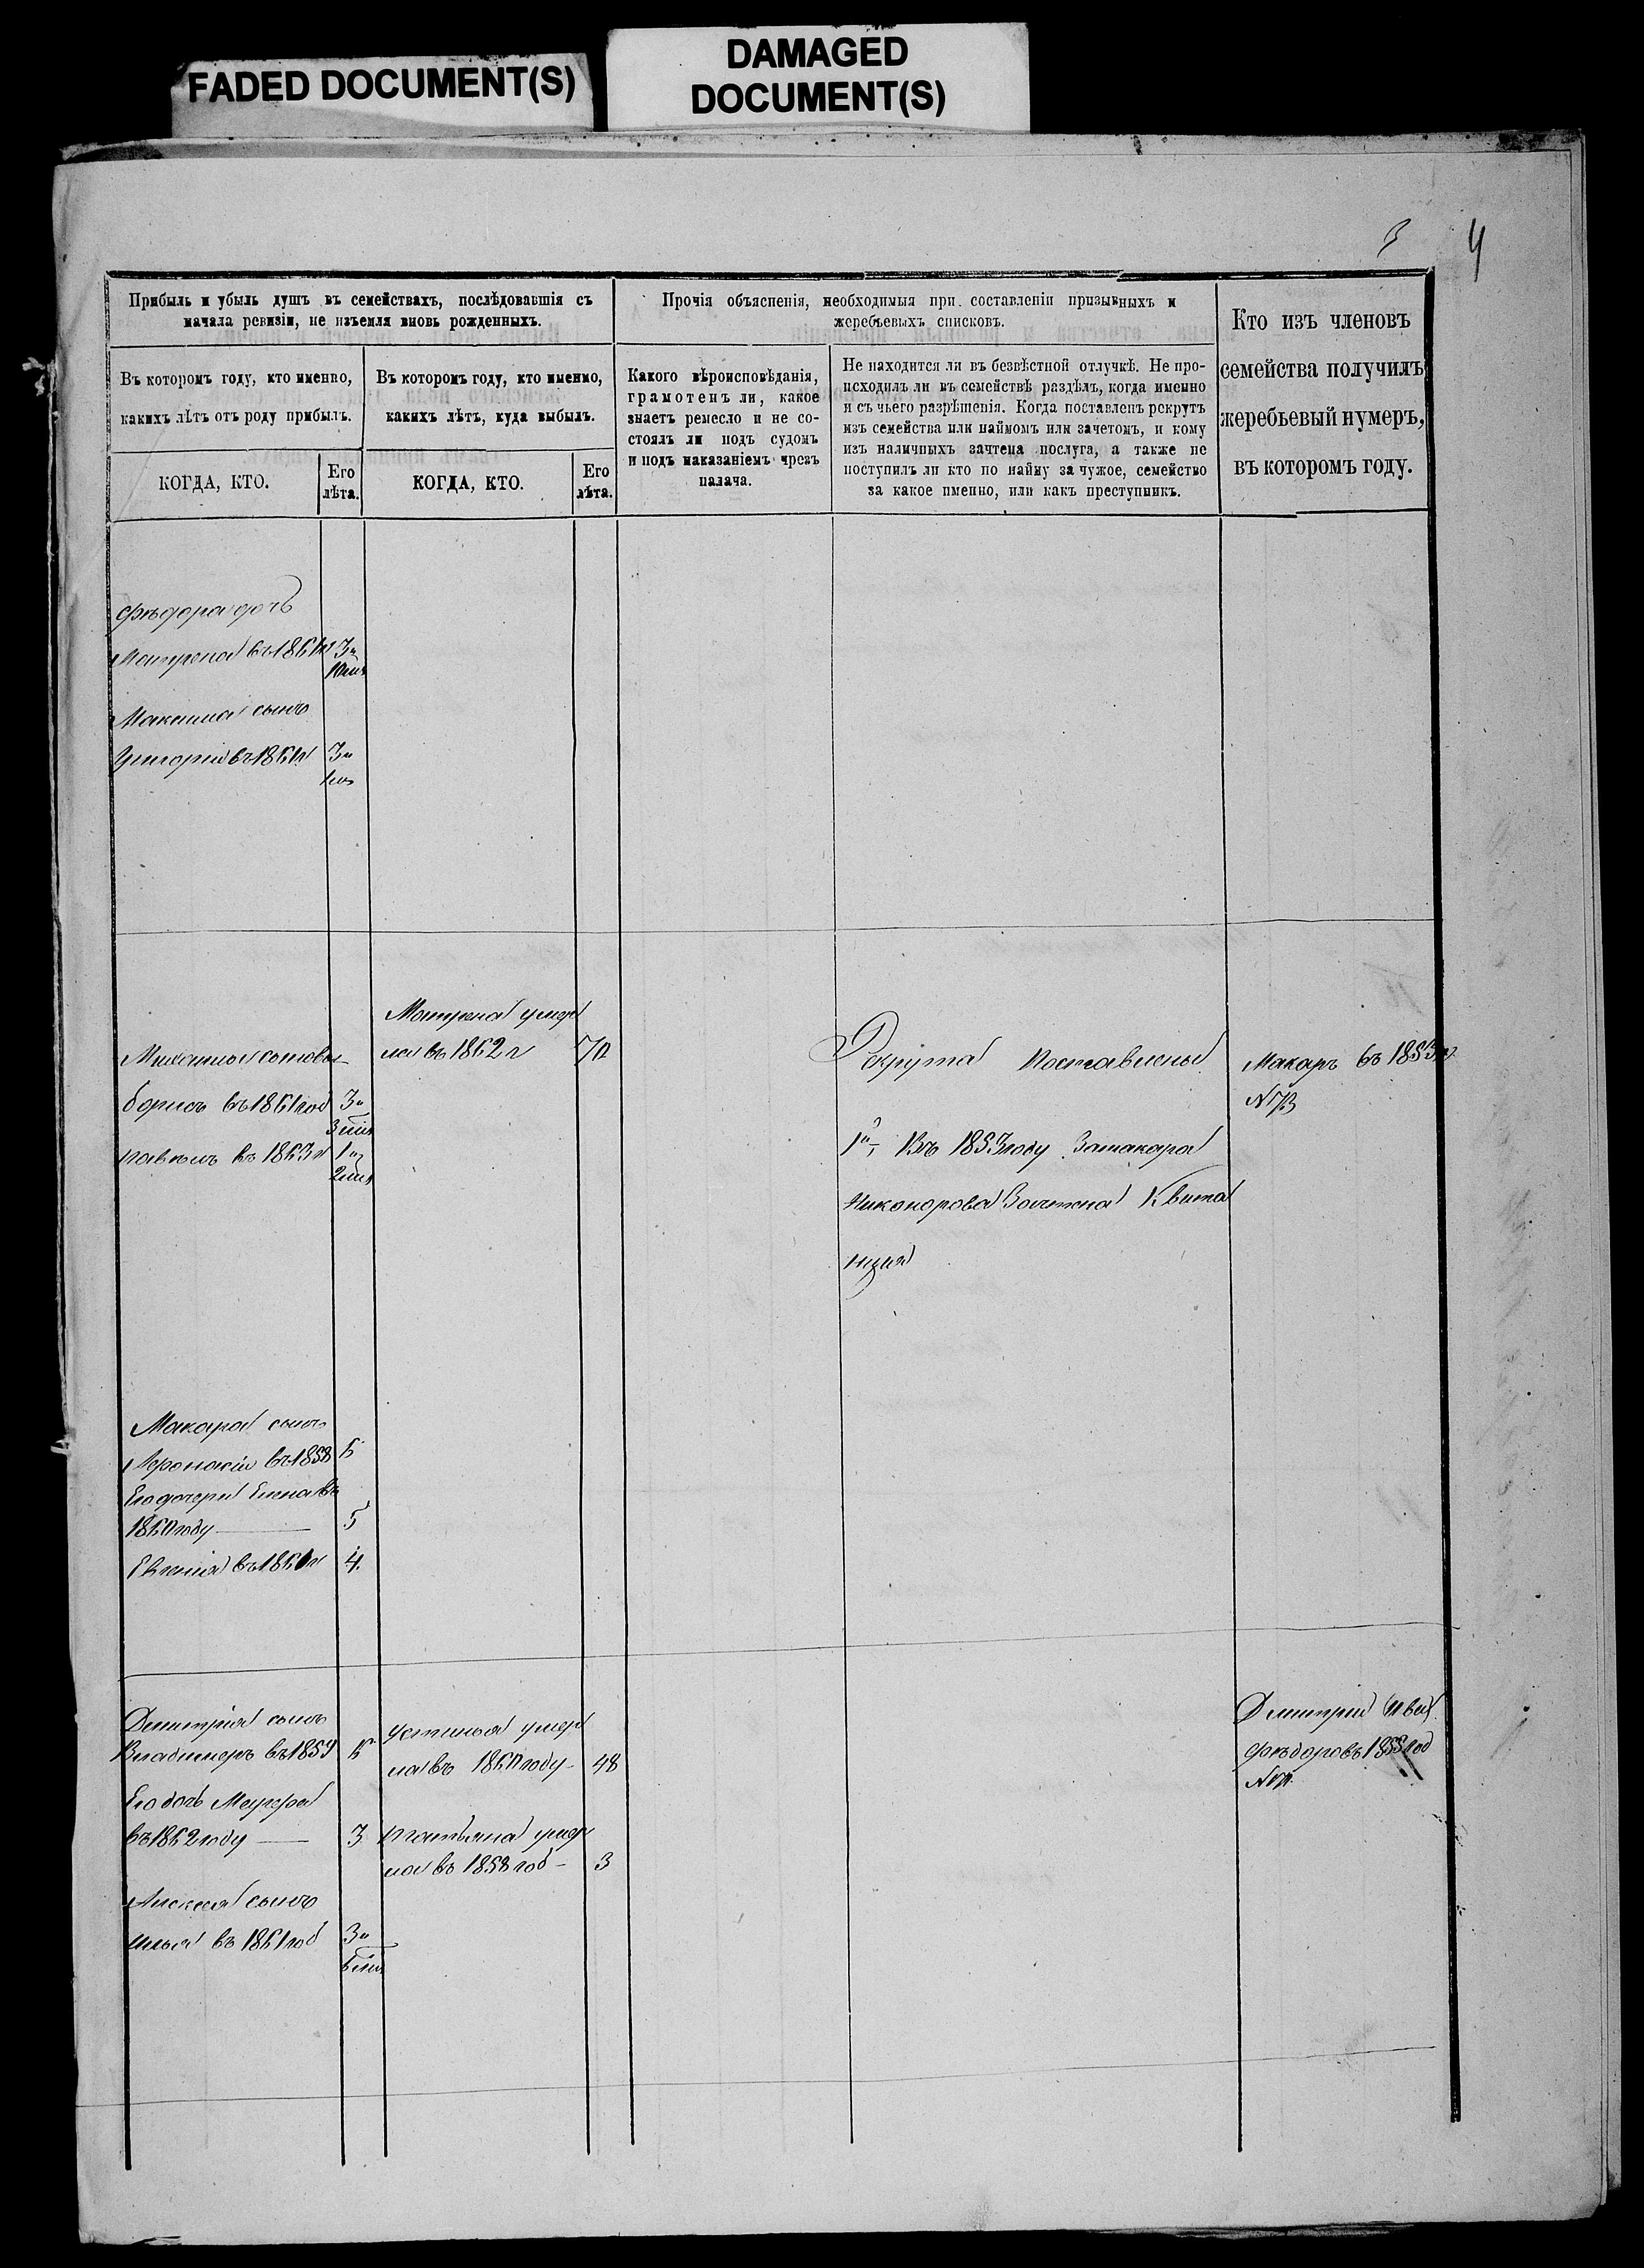 FADED DOCUMENT(S)
DAMAGED
DOCUMENT(S)
3 4
Прибыль и убыль душъ въ семействахъ, послѣдовавшія съ
начала ревизіи, не изъемля вновь рожденныхъ.
Въ которомъ году, кто именно,
какихъ лѣтъ отъ роду прибылъ.
КОГДА, КТО.
Его
лѣта.
Въ которомъ году, кто именно,
какихъ лѣтъ, куда выбылъ.
КОГДА, КТО.
Его
лѣта.
Прочія объясненія, необходимыя при составленіи призывныхъ и
жеребьевыхъ списковъ.
Какого вѣроисповѣданія,
грамотенъ ли, какое
знаетъ ремесло и не со-
стоялъ ли подъ судомъ
и подъ наказаніемъ чрезъ
палача.
Не находится ли въ безвѣстной отлучкѣ. Не про-
исходилъ ли въ семействѣ раздѣлъ, когда именно
и съ чьего разрѣшенія. Когда поставленъ рекрутъ
изъ семейства или наймомъ или зачетомъ, и кому
изъ наличныхъ зачтена послуга, а также не
поступилъ ли кто по найму за чужое, семейство
за какое именно, или какъ преступникъ.
Кто изъ членовъ
семейства получилъ
жеребьевый нумеръ,
въ которомъ году.
Фѣдора дочь
Матрена въ 1861 г 3
Максима сынъ
Григорій въ 1861 г 3
Матрена умер
ла въ 1862 г 70
Михаила сыновья
борисъ въ 1861 год 3
павелъ въ 1863 г 1
Рекрута поставлены
1й въ 1853 году За макара
Никонорова Зачтена Квита
нция
Макаръ въ 1853 г
Макара сынъ
Афонасій въ 1858 6
Его дочери Елена въ
1860 году 5
Евгения въ 1861 г 4
Дмитрія сынъ
Владимеръ въ 1859 6
Его дочь
въ 1862 году 3
Алексея сынъ
илья въ 1861 год 3
устинья умер
ла въ 1860 году 48
татьяна умер
ла въ 1858 год 3
Дмитрий
Фѣдоровъ 1855 год